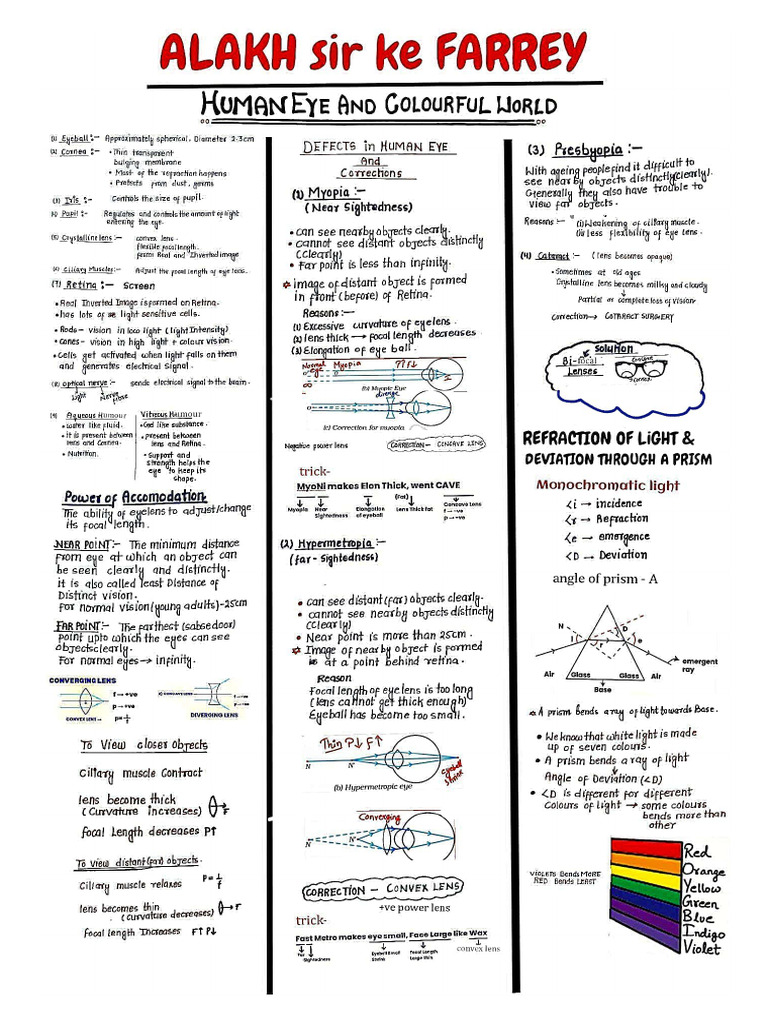 ALAKH sir ke FARREY
HUMAN EYE AND COLOURFUL WORLD
(1) Eyeball :- Approximately spherical, Diameter 2-3cm
(2) Cornea :- • Thin transparent
bulging membrane
• Most of the refraction happens
• Protects from dust, germs
(3) Iris :- Controls the size of pupil.
Pupil :- Regulates and controls the amount of light
entering the eye.
(5) Crystalline lens :- convex lens.
flexible focal length.
Real and Inverted image
Ciliary Muscles :- Adjust the focal length of eye lens.
(7) Retina :- Screen
• Real Inverted Image is formed on Retina.
• has lots of light sensitive cells.
• Rods - vision in low light (Light Intensity)
• Cones - vision in high light + colour vision.
• Cells get activated when light falls on them
and generates electrical signal.
optical nerve :- sends electrical signal to the brain.
Light Nerve
(9) Aqueous Humour
• water like fluid.
• it is present between
lens and Cornea.
• Nutrition.
Vitreous Humour
• Gel like substance.
• present between
lens and Retina.
• Support and
strength helps the
eye to keep its
shape.
Power of Accomodation
The ability of eyelens to adjust/change
its focal length.
NEAR POINT:- The minimum distance
from eye at which an object can
be seen clearly and distinctly.
it is also called least Distance of
Distinct vision.
For normal vision (young adults)-25cm
FAR POINT:- The farthest (sabse door)
point upto which the eyes can see
objects clearly.
For normal eyes → infinity.
CONVERGING LENS
f → +ve
p → +ve
CONVEX LENS → p = 1/f
CONCAVE LENS
f → -ve
p → -ve
DIVERGING LENS
To View closer Objects
Ciliary muscle Contract
lens become thick
(Curvature increases) r
focal Length decreases P↑
To view distant(far) objects.
Ciliary muscle relaxes P = 1/f
lens becomes thin
(curvature decreases) → r
focal length Increases F↑ P↓
DEFECTS in HUMAN EYE
And
Corrections
(1) Myopia :-
(Near Sightedness)
• can see nearby objects clearly.
• cannot see distant objects distinctly
(Clearly)
• Far point is less than infinity.
image of distant object is formed
in front (before) of Retina.
Reasons :-
(1) Excessive curvature of eyelens.
(2) lens thick → focal length decreases
(3) Elongation of eye ball.
Normal eye
Myopia
P↑ F↓
∞
(b) Myopic Eye
diverge
O
(c) Correction for myopia
Negative power lens
CORRECTION - CONCAVE LENS
trick-
MyoNi makes Elon Thick, went CAVE
(Fat)
Myopia
Near
Sightedness
Elongation
of eyeball
Lens Thick fat
Concave Lens
f → -ve
p → -ve
(2) Hypermetropia :-
(far - Sightedness)
• can see distant(far) objects clearly.
• cannot see nearby objects distinctly
(Clearly)
• Near point is more than 25cm.
Image of nearby object is formed
at a point behind retina.
Reason
Focal length of eye lens is too long
(lens cannot get thick enough)
Eyeball has become too small.
Thin P↓ F↑
N
N'
Eyeball
(b) Hypermetropic eye
Converging
N'
N
CORRECTION - CONVEX LENS
+ve power lens
trick-
Fast Metro makes eye small, Face Large like Wax
Far
Sightedness
Eyeball Small
Shrink
Focal Length
Large thin
convex lens
(3) Presbyopia :-
With ageing people find it difficult to
see nearby objects distinctly(clearly).
Generally they also have trouble to
view far objects.
Reasons :- (i) Weakening of ciliary muscle.
(ii) less flexibility of eye lens.
(4) Cataract :- (lens becomes opaque)
• Sometimes at old ages
Crystalline lens becomes milky and cloudy
Partial or complete loss of vision
Correction → CATARACT SURGERY
Solution
Bi-focal
Lenses
Concave
Convex
REFRACTION OF LiGHT &
DEVIATION THROUGH A PRISM
Monochromatic light
∠i → incidence
∠r → Refraction
∠e → emergence
∠D → Deviation
angle of prism - A
A
N
D
i
r
e
Air
Glass
Glass
Air
Base
emergent
ray
A prism bends a ray of light towards Base.
• We know that white light is made
up of seven colours.
• A prism bends a ray of light
Angle of Deviation (∠D)
• ∠D is different for different
Colours of light → some colours
bends more than
other
VIOLETS Bends MORE
RED Bends LEAST
Red
Orange
Yellow
Green
Blue
Indigo
Violet